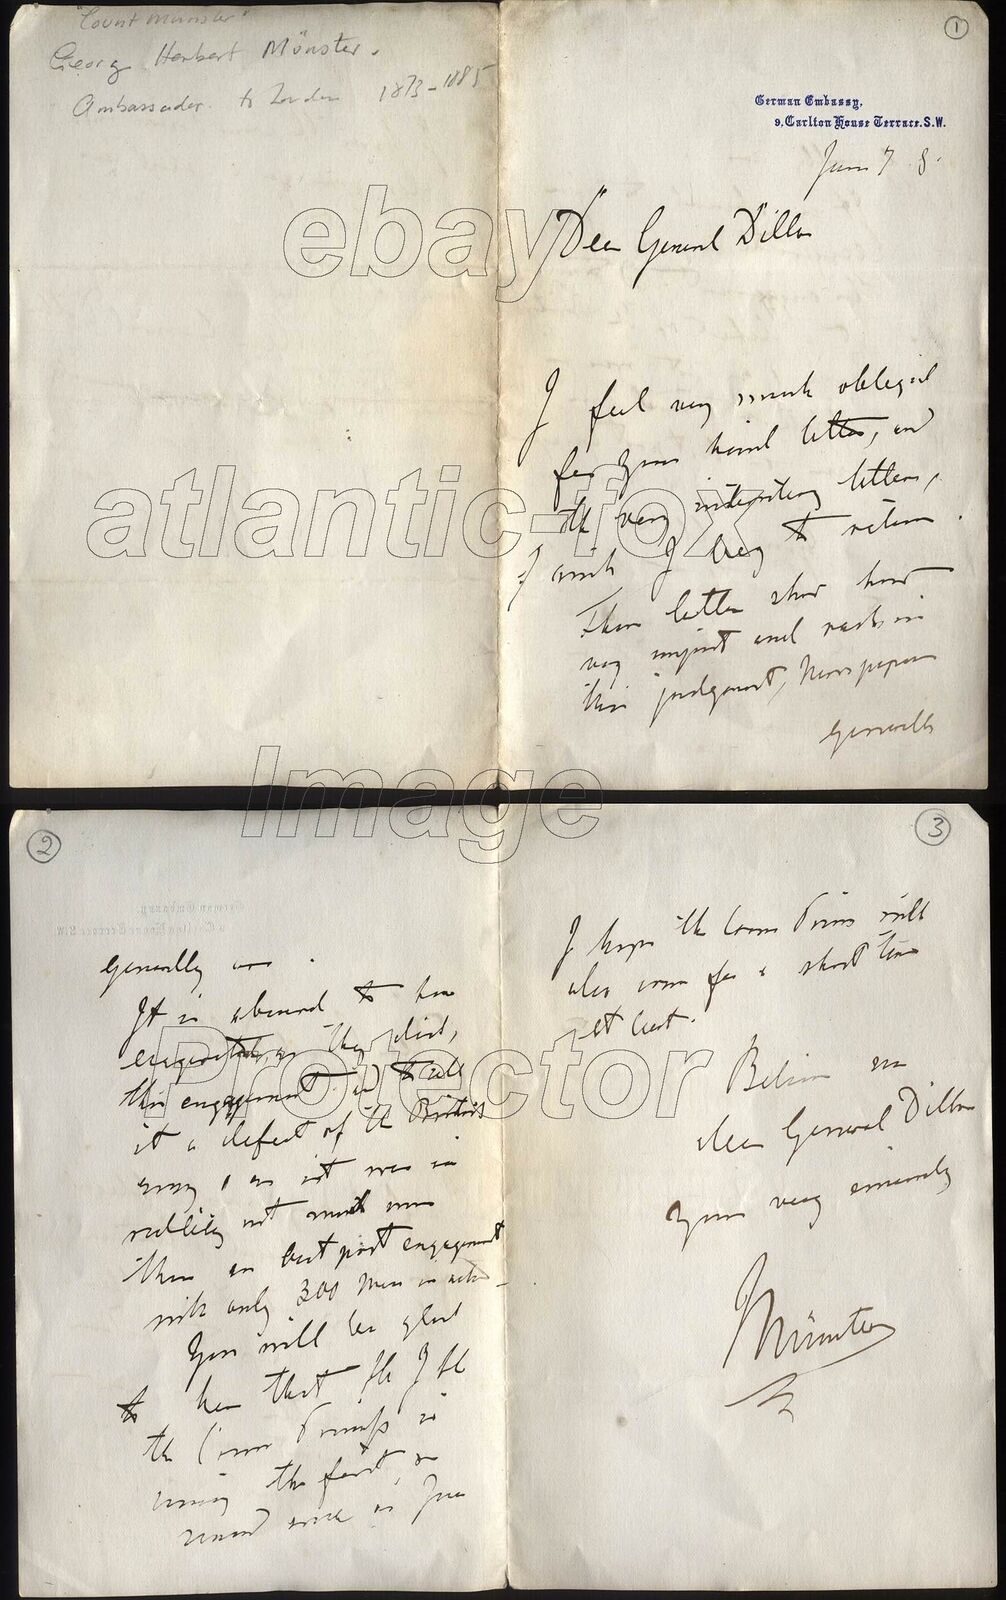 "Count Münster"
Georg Herbert Münster.
Ambassador to London 1873-1885
1
German Embassy.
9, Carlton House Terrace. S.W.
June 7 8.
Dear General Dillon
I feel very much obliged
for your kind letter, and
the very interesting letters,
which I beg to return.
These letters show how
very unjust and rash in
their judgement, Newspapers
generally
2
generally are.
It is absurd to have
exaggerated, as they did,
this engagement and to call
it a defeat of the British
army, as it was in
reality not much more
than an out post engagement
with only 300 Men in
You will be glad
to hear that the
the Crown Princess is
coming the first or
second week in June
3
I hope the Crown Prince will
also come for a short time
at least.
Believe me
dear General Dillon
Yours very sincerely
Münster
ebay
atlantic-fox
Image
Protector